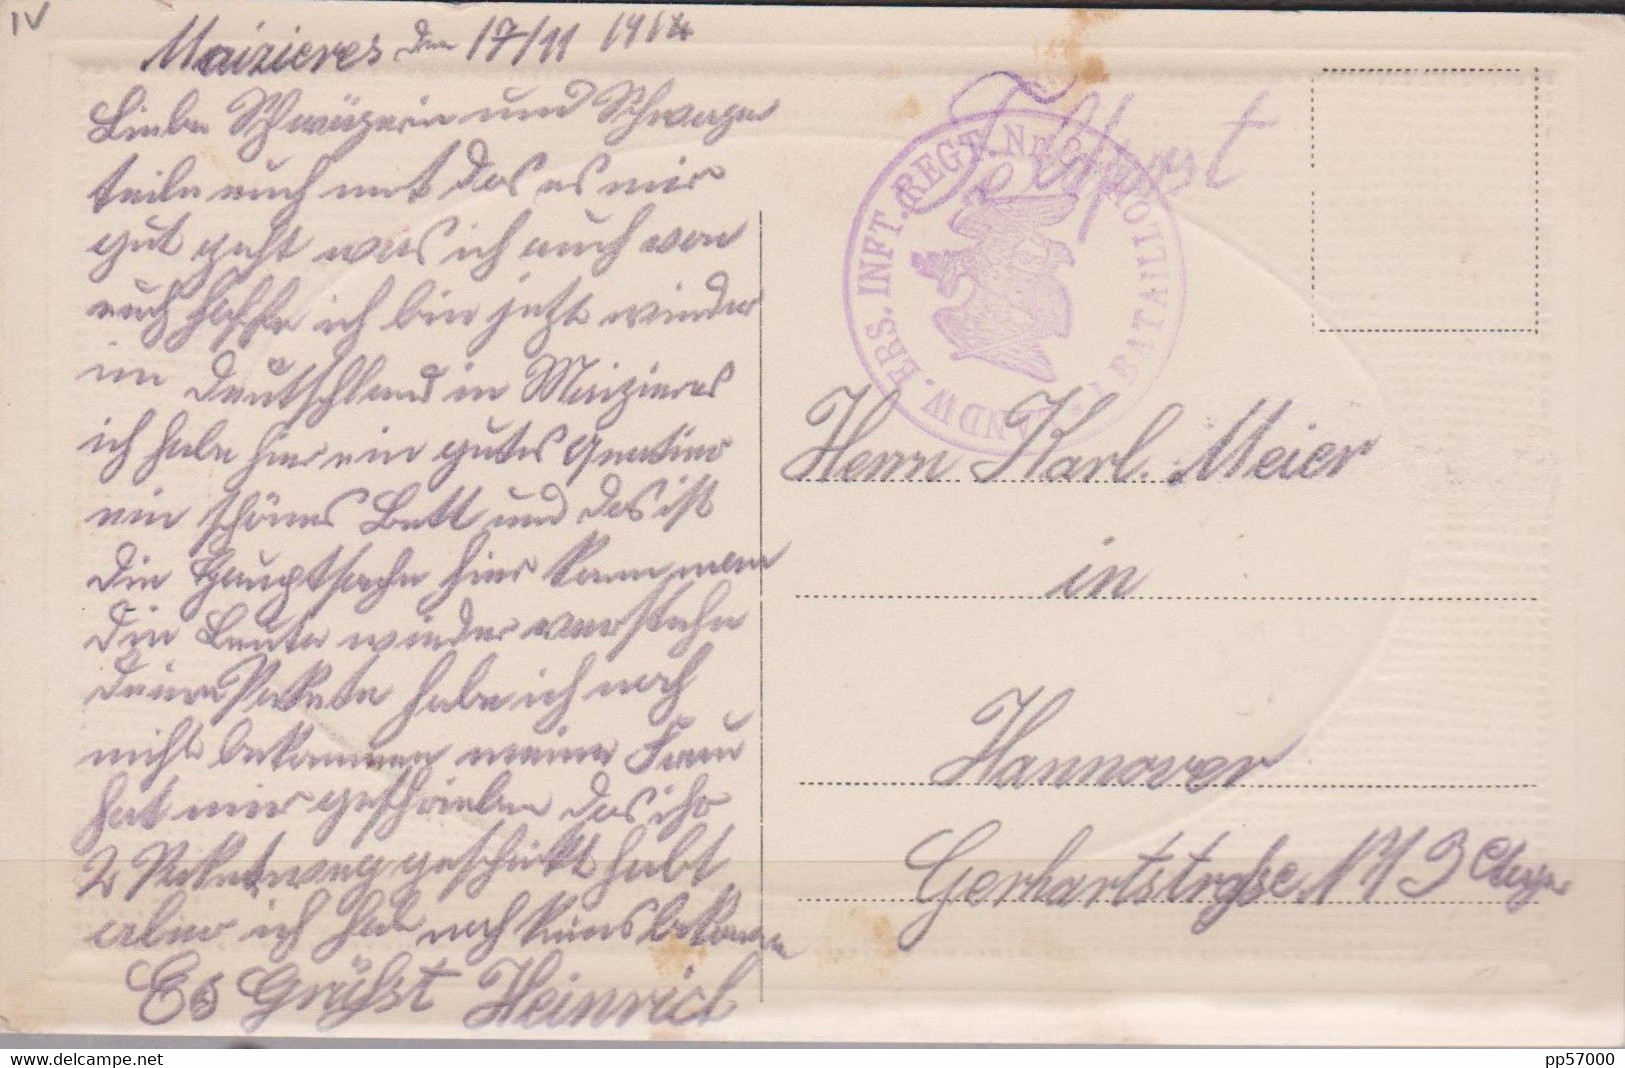 IV
Maizieres den 17/11 1914
Liebe Schwägerin und Schwager
teile euch mit das es mir
gut geht was ich auch von
euch hoffe ich bin jetzt wieder
in Deutschland in Maizieres
ich habe hier ein gutes Quatier
ein schönes Bett und das ist
die Hauptsache hier kann man
die Leute wieder verstehe
deine Pakete habe ich noch
nicht bekommen meine Frau
hat mir geschrieben das ihr
2 Paket weg geschickt habt
aber ich hab noch keins bekomen
Es Grüßst Heinrich
Feldpost
LANDW. ERS. INFT. REGT. BATAILLON
Herrn Karl. Meier
in
Hannover
Gerhartstraße
delcampe.net
pp57000